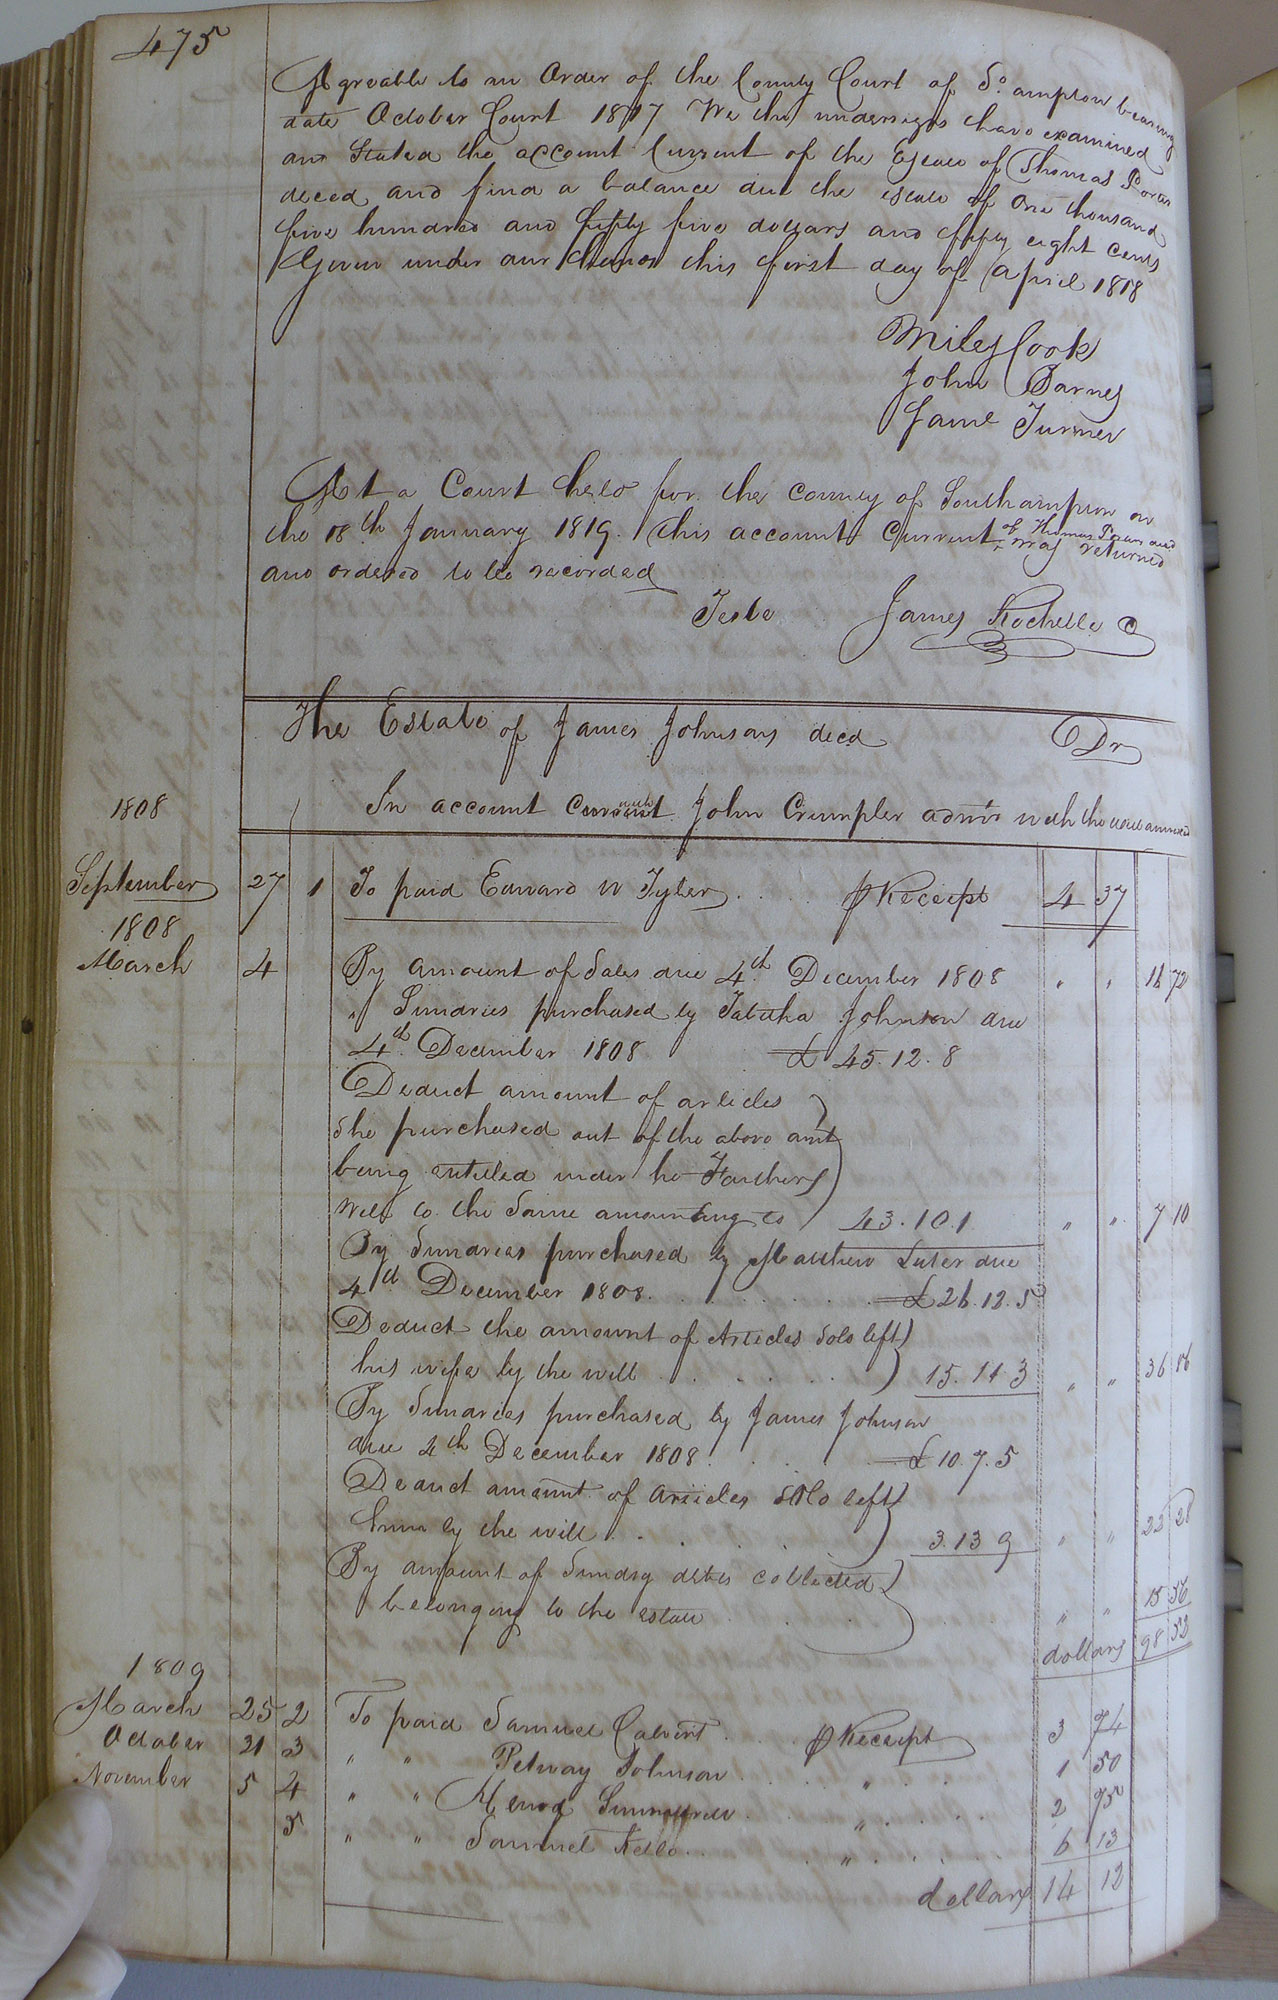 475
Agreable to an Order of the County Court of So. ampton bearing
date October Court 1817 We the undersigns have examined
and Stated the account Current of the Estate of Thomas
deced and find a balance due the estate of One thousand
five hundred and fifty five dollars and fifty eight cents
Given under our hands this first day of April 1818
Miles Cook
John Barnes
Turner
At a Court held for the county of Southampton on
the 18th January 1819. This account Current of Thomas decd was returned
and ordered to be recorded
Teste James Rochelle C
The Estate of James Johnson decd Dr
1808 In account Current with John Crumpler admr with the will annexed
September 27 1 To paid Edward W Tyler . . . . ⅌ Receipt 4 37
1808
March 4 By amount of Sales due 4th December 1808 " " 16 72
" Sundries purchased by Tabitha Johnson due
4th December 1808 £ 45.12.8
Deduct amount of articles
She purchased out of the above amt
being entitled under her Fathers
Will to the Same amounting to 43.10.1 " " 7 10
By Sundries purchased by Matthew Luter due
4th December 1808. . . . . . £ 26.12.5
Deduct the amount of Articles Sold left
his wife by the will . . . . . 15.11.3 " " 36 86
By Sundries purchased by James Johnson
due 4th December 1808 . . . £ 10.7.5
Deduct amount of Articles Sold left
him by the will . . . . . 3.13 9 " " 22 28
By amount of Sundry debts collected
belonging to the estate . . . . " " 15 56
dollars 98 52
1809
March 25 2 To paid Samuel Calvert . . ⅌ Receipt 3 74
October 31 3 " " Petway Johnson . . . " . . . 1 50
November 5 4 " " . . " . . . 2 75
5 " " Samuel Kello . . . " . . . . 6 13
dollars 14 12